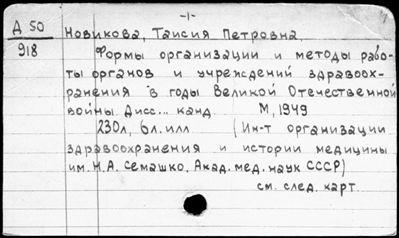 -1-
Д 50
918
Новикова, Таисия Петровна.
Формы организации и методы рабо-
ты органов и учреждений здравоох-
ранения в годы Великой Отечественной
войны. Дисс... канд. М, 1949
230л, 6л. илл (Ин-т организации
здравоохранения и истории медицины
им. Н.А. Семашко. Акад. мед. наук СССР)
см. след. карт